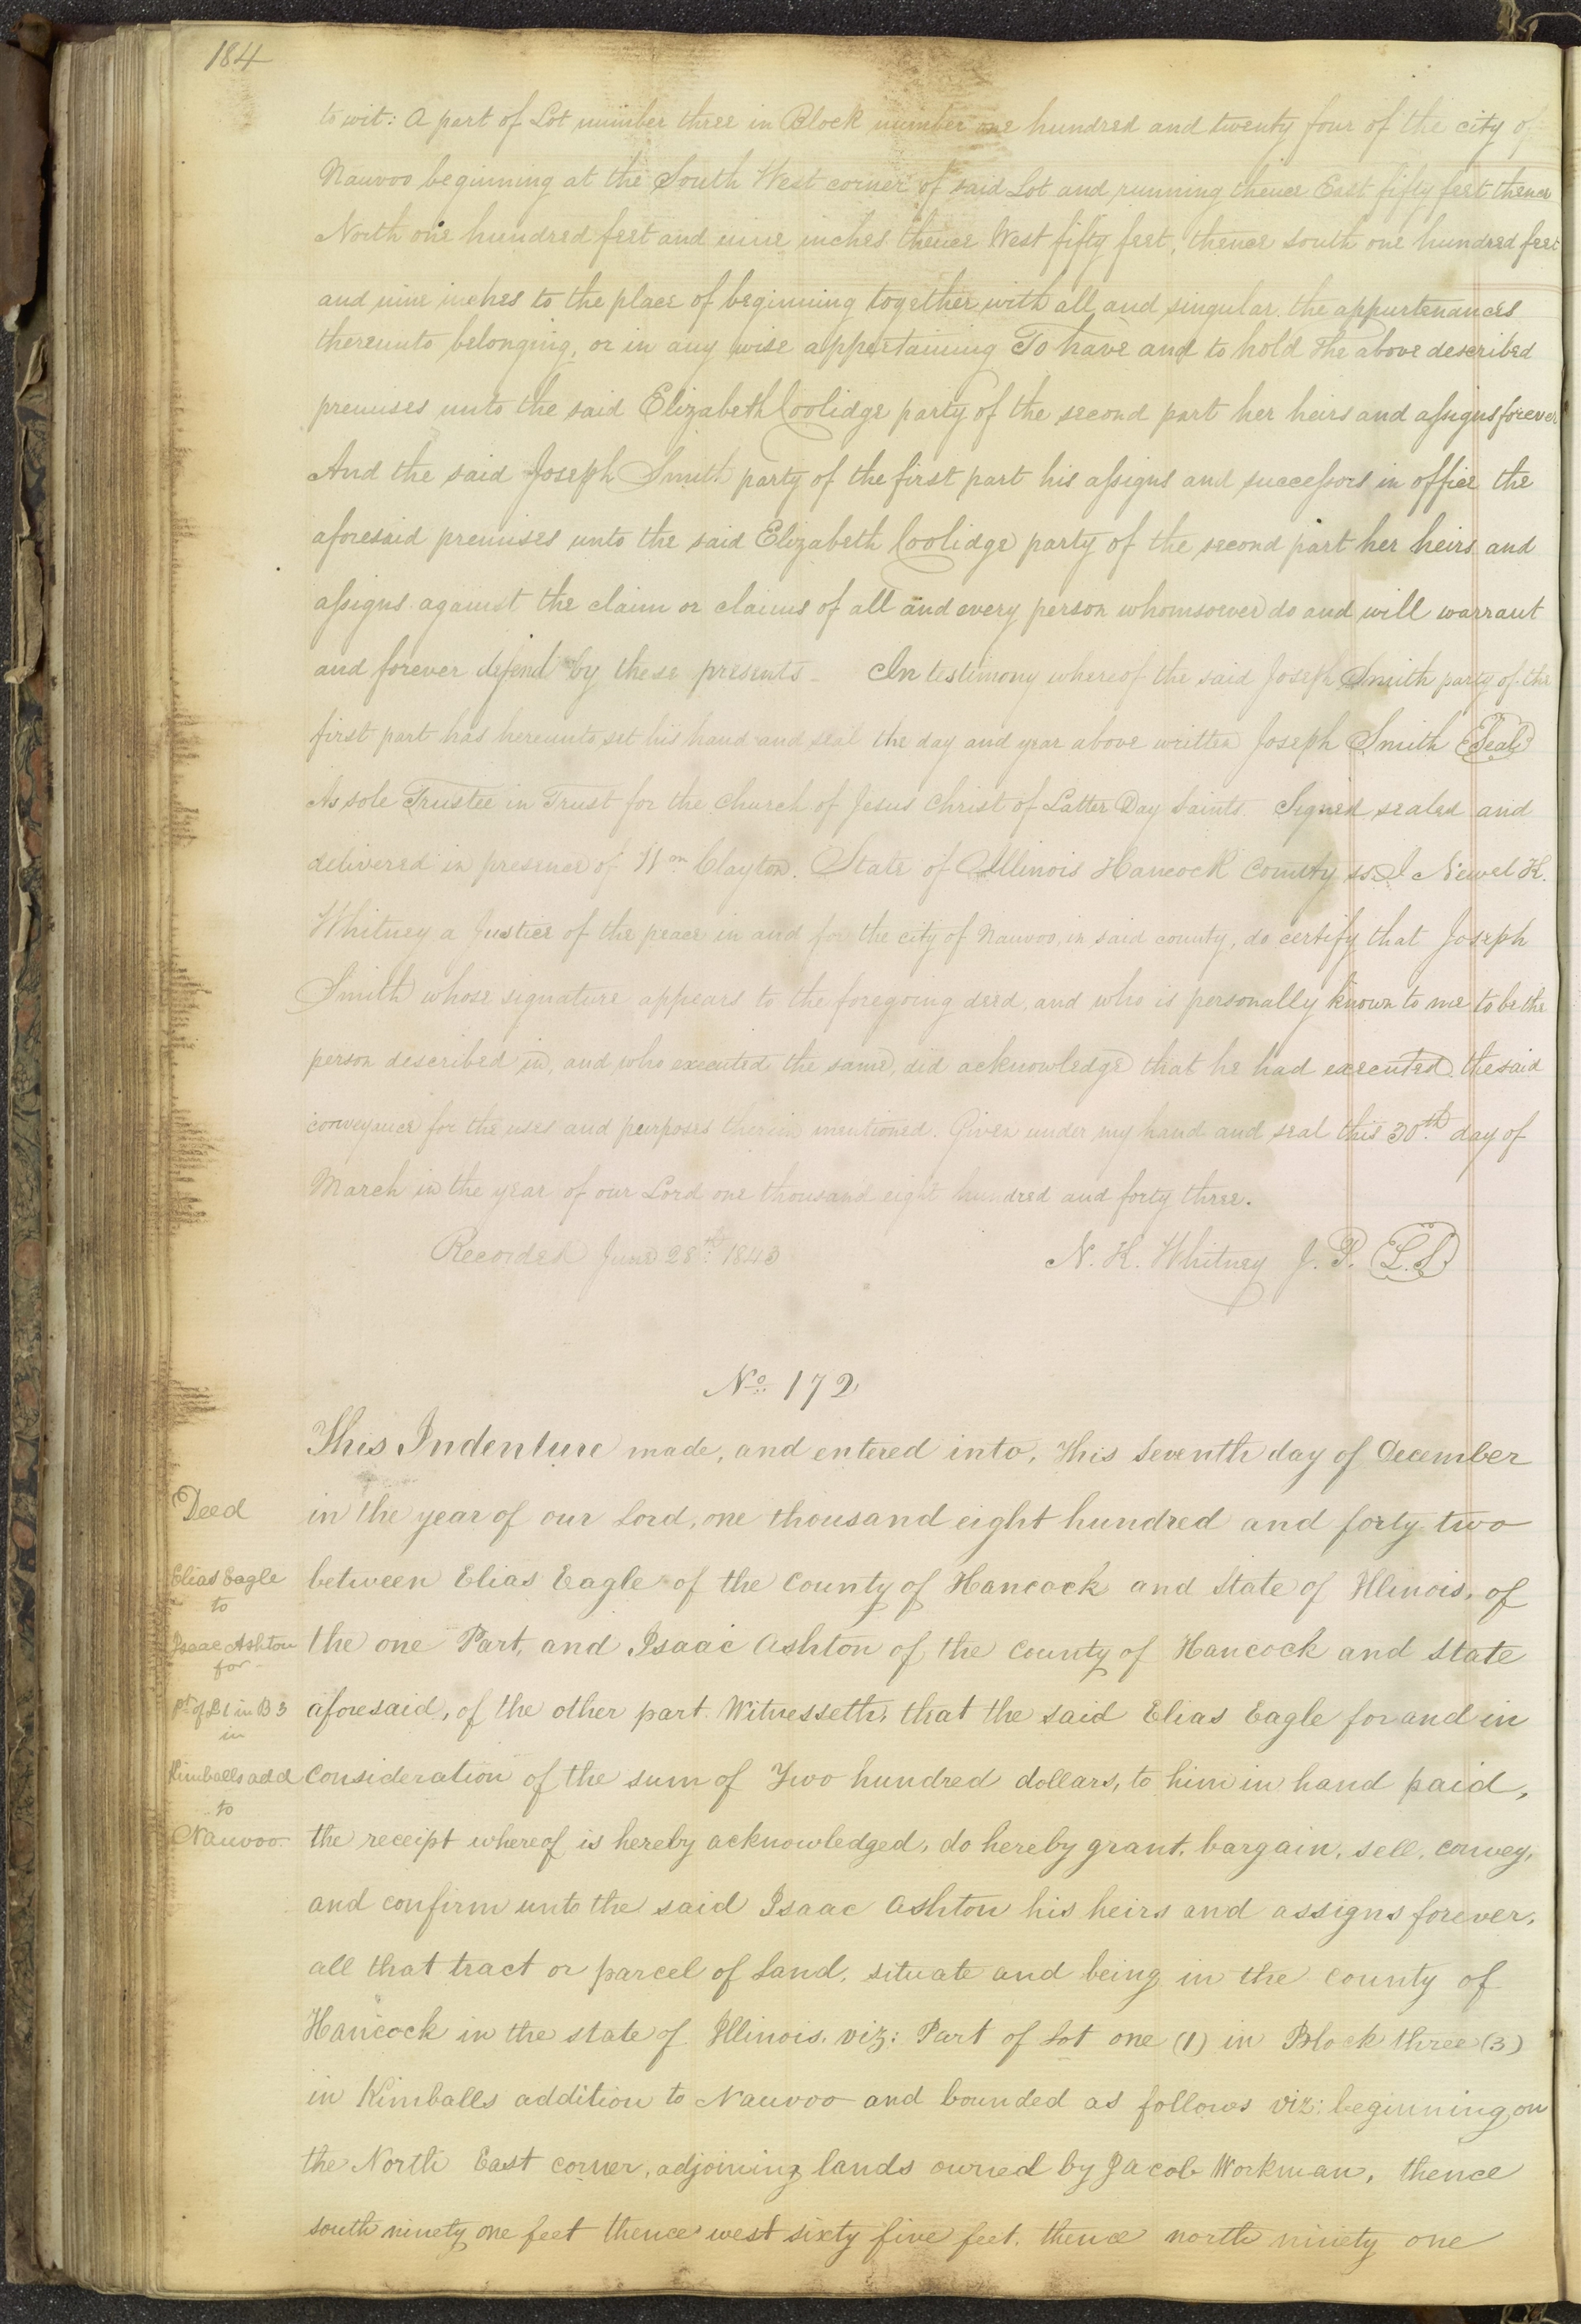 184
to wit: A part of Lot number three in Block number one hundred and twenty four of the city of
Nauvoo beginning at the South West corner of said Lot and running thence East fifty feet thence
North one hundred feet and nine inches thence West fifty feet, thence south one hundred feet
and nine inches to the place of beginning together with all and singular the appurtenances
thereunto belonging, or in any wise appertaining To have and to hold the above described
premises unto the said Elizabeth Coolidge party of the second part her heirs and assigns forever
And the said Joseph Smith party of the first part his assigns and successors in office the
aforesaid premises unto the said Elizabeth Coolidge party of the second part her heirs and
assigns against the claim or claims of all and every person whomsoever do and will warrant
and forever defend by these presents - In testimony whereof the said Joseph Smith party of the
first part has hereunto set his hand and seal the day and year above written Joseph Smith (Seal)
As sole Trustee in Trust for the Church of Jesus Christ of Latter Day Saints. Signed sealed and
delivered in presence of Wm Clayton. State of Illinois Hancock County ss. I Newel K.
Whitney a Justice of the peace in and for the city of Nauvoo, in said county, do certify that Joseph
Smith whose signature appears to the foregoing deed, and who is personally known to me to be the
person described in, and who executed the same, did acknowledge that he had executed the said
conveyance for the uses and purposes therein mentioned. Given under my hand and seal this 30th day of
March in the year of our Lord one thousand eight hundred and forty three.
Recorded June 28th 1843 N. K. Whitney J. P. (L.S.)
No. 172
This Indenture made, and entered into, this seventh day of December
Deed
in the year of our Lord, one thousand eight hundred and forty two
Elias Eagle
between Elias Eagle of the County of Hancock and State of Illinois, of
to
Isaac Ashton
the one Part, and Isaac Ashton of the County of Hancock and State
for
pt of L 1 in B 3
aforesaid, of the other part. Witnesseth, that the said Elias Eagle for and in
in
Kimballs add
consideration of the sum of Two hundred dollars, to him in hand paid,
to
Nauvoo
the receipt whereof is hereby acknowledged, do hereby grant, bargain, sell, convey,
and confirm unto the said Isaac Ashton his heirs and assigns forever,
all that tract or parcel of Land, situate and being in the county of
Hancock in the state of Illinois, viz: Part of Lot one (1) in Block three (3)
in Kimballs addition to Nauvoo and bounded as follows viz: beginning on
the North East corner, adjoining lands owned by Jacob Workman, thence
south ninety one feet thence west sixty five feet, thence north ninety one